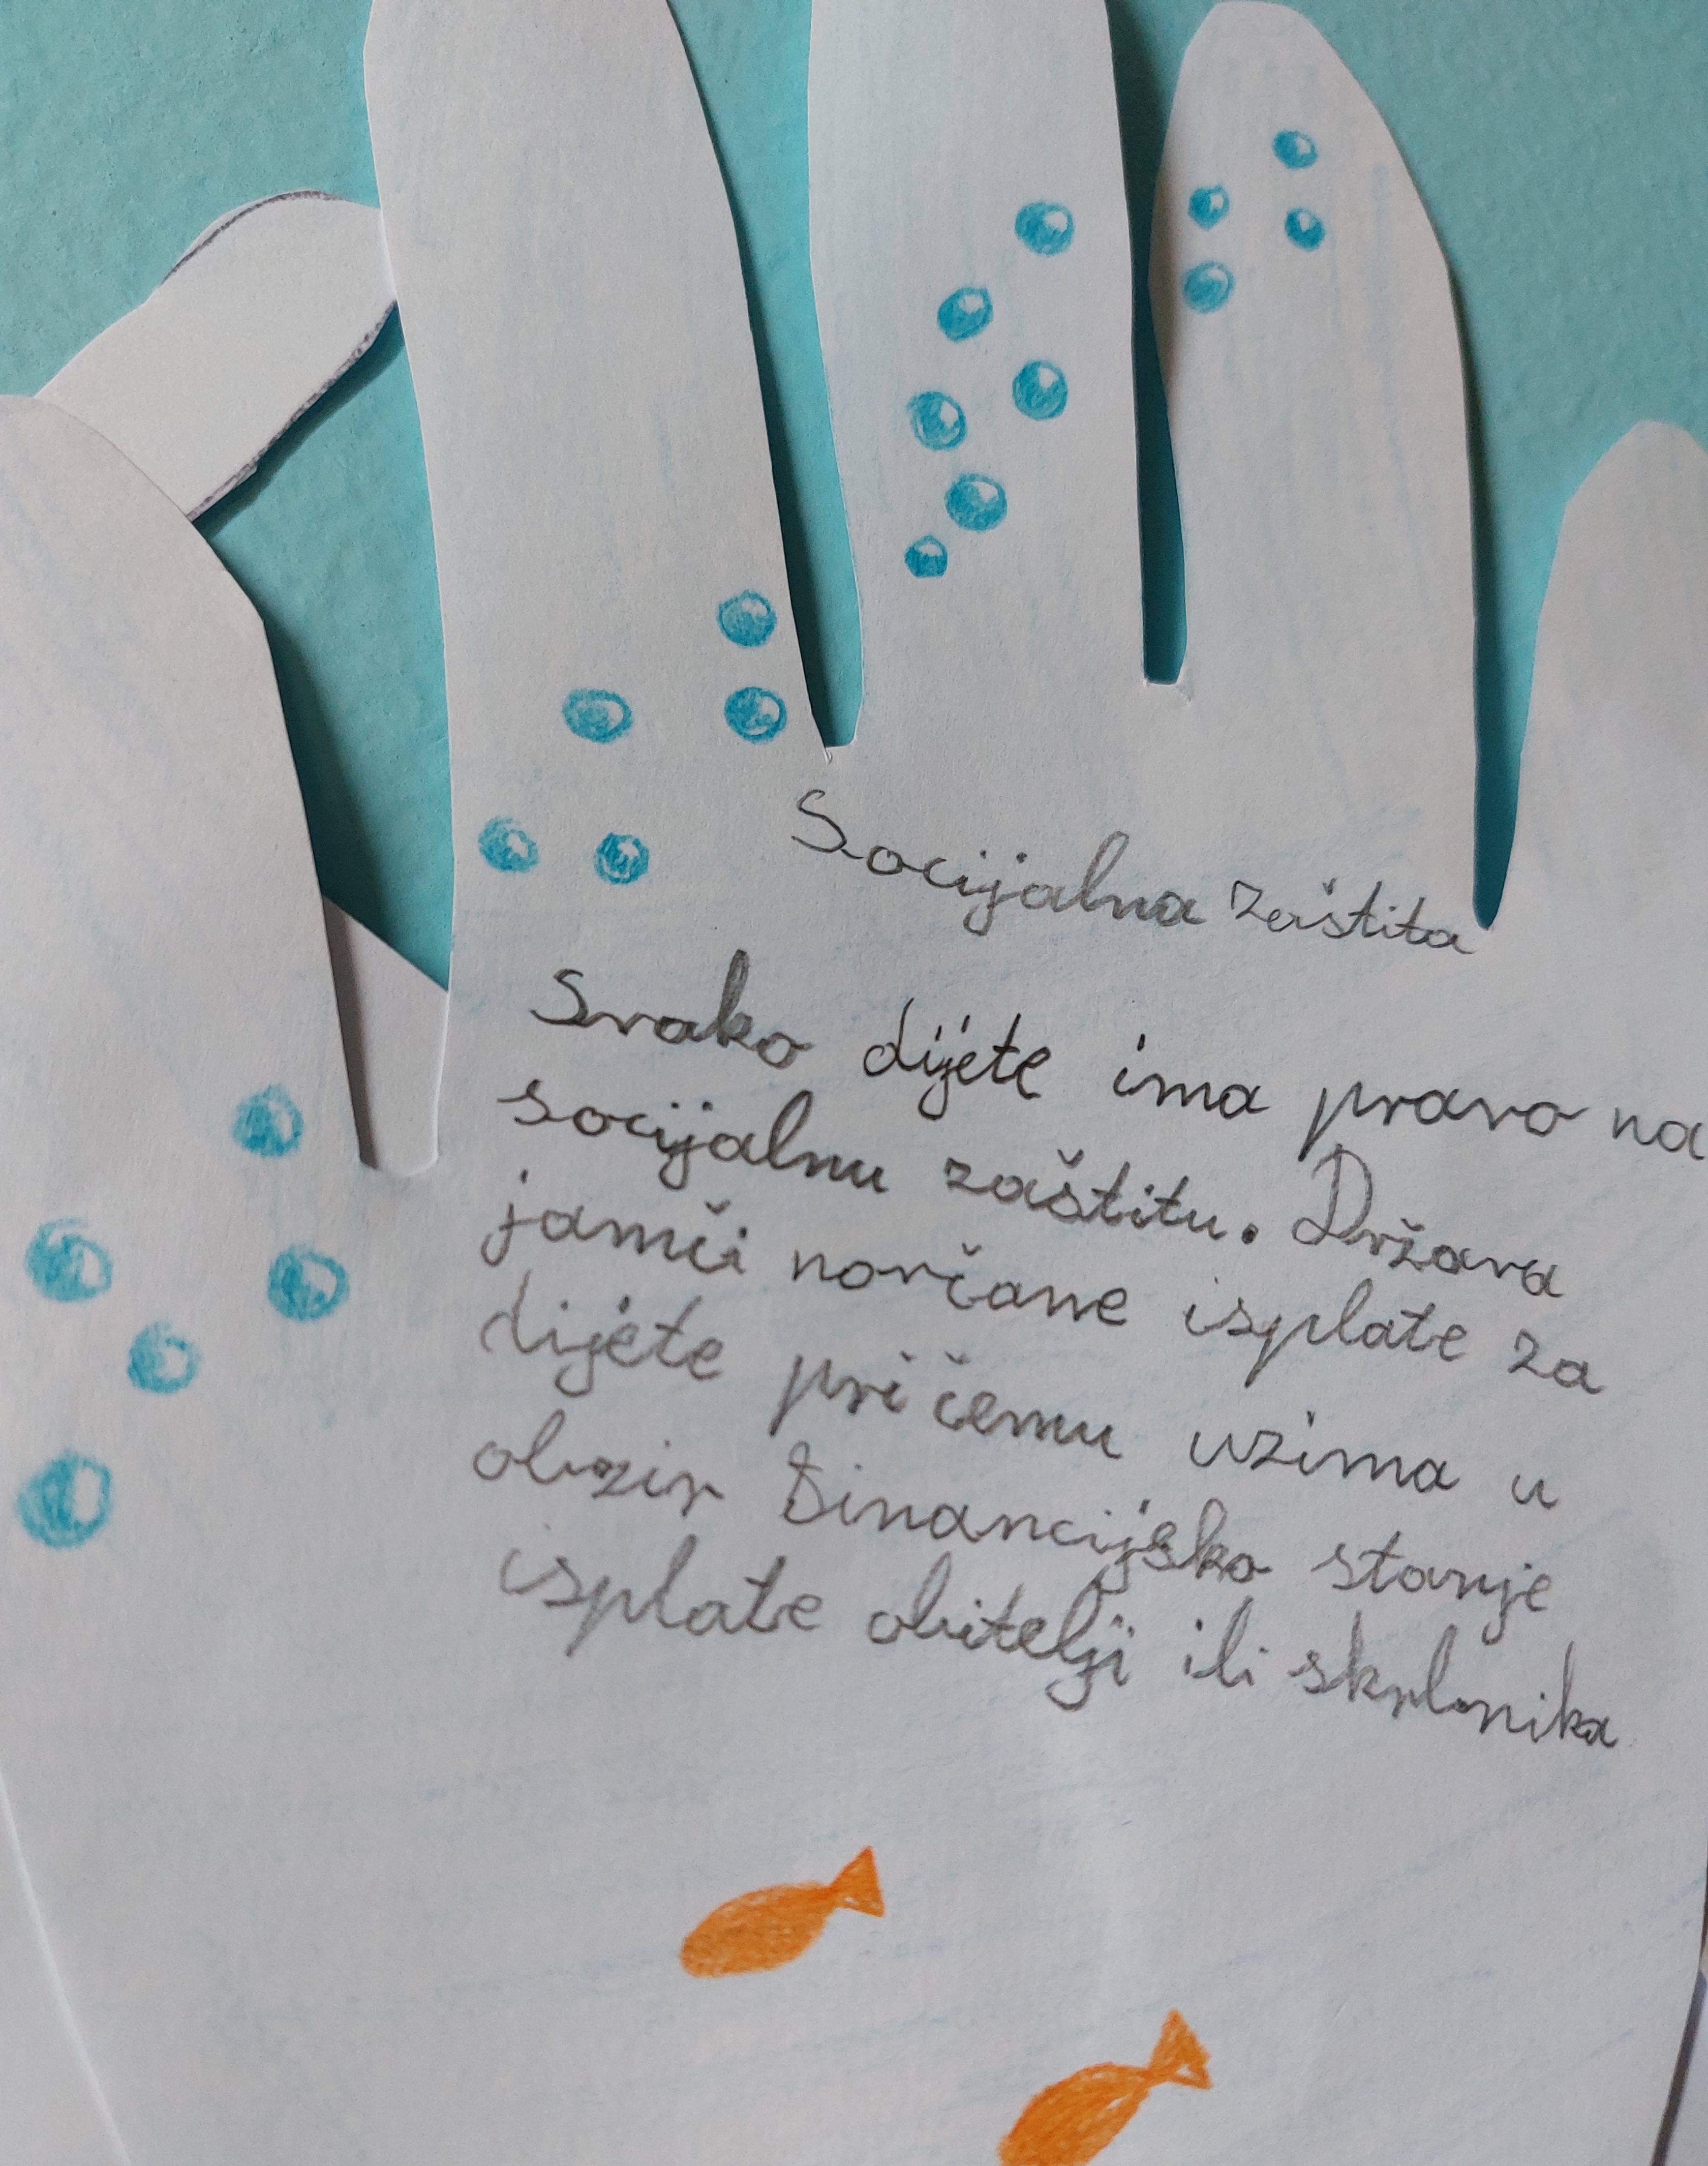 Socijalna zaštita
Svako dijete ima pravo na
socijalnu zaštitu. Država
jamči novčane isplate za
dijete pri čemu uzima u
obzir financijsko stanje
isplate obitelji ili skrbnika